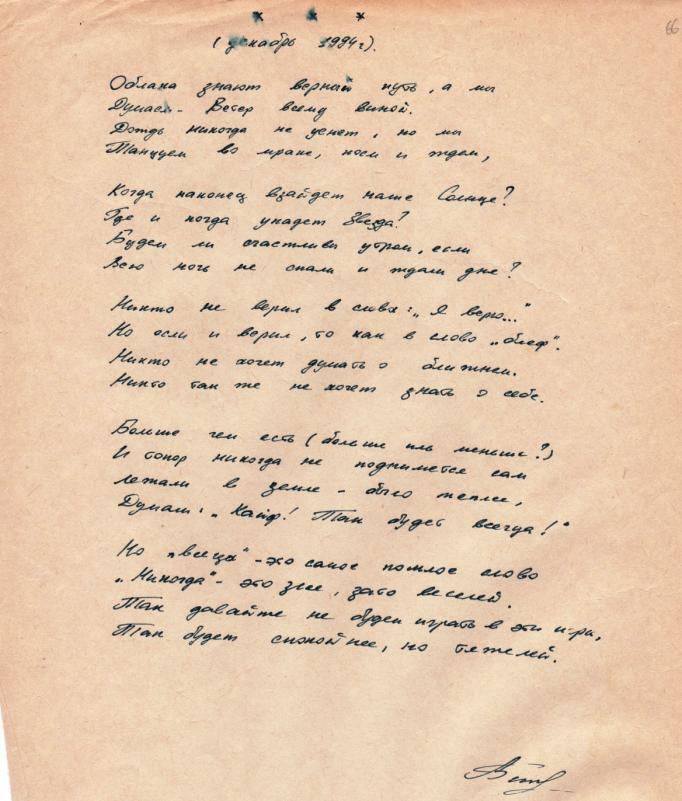 * * *
66
(декабрь 1994г).
Облака знают верный путь, а мы
Думаем - Ветер всему виной.
Дождь никогда не уснет, но мы
Танцуем во мраке, поем и ждем,
Когда наконец взайдет наше Солнце?
Где и когда упадет Звезда?
Будем ли счастливы утром, если
Всю ночь не спали и ждали дне?
Никто не верил в слова: „Я верю..."
Но если и верил, то как в слово „блеф".
Никто не хочет думать о ближнем.
Никто так же не хочет знать о себе.
Больше чем есть (больше иль меньше?)
И топор никогда не поднимется сам
Лежали в земле - было теплее,
Думали: „Кайф! Так будет всегда!"
Но „всегда" - это самое пошлое слово
„Никогда" - это злее, зато веселей.
Так давайте не будем играть в эти игры,
Так будет спокойнее, но тяжелей.